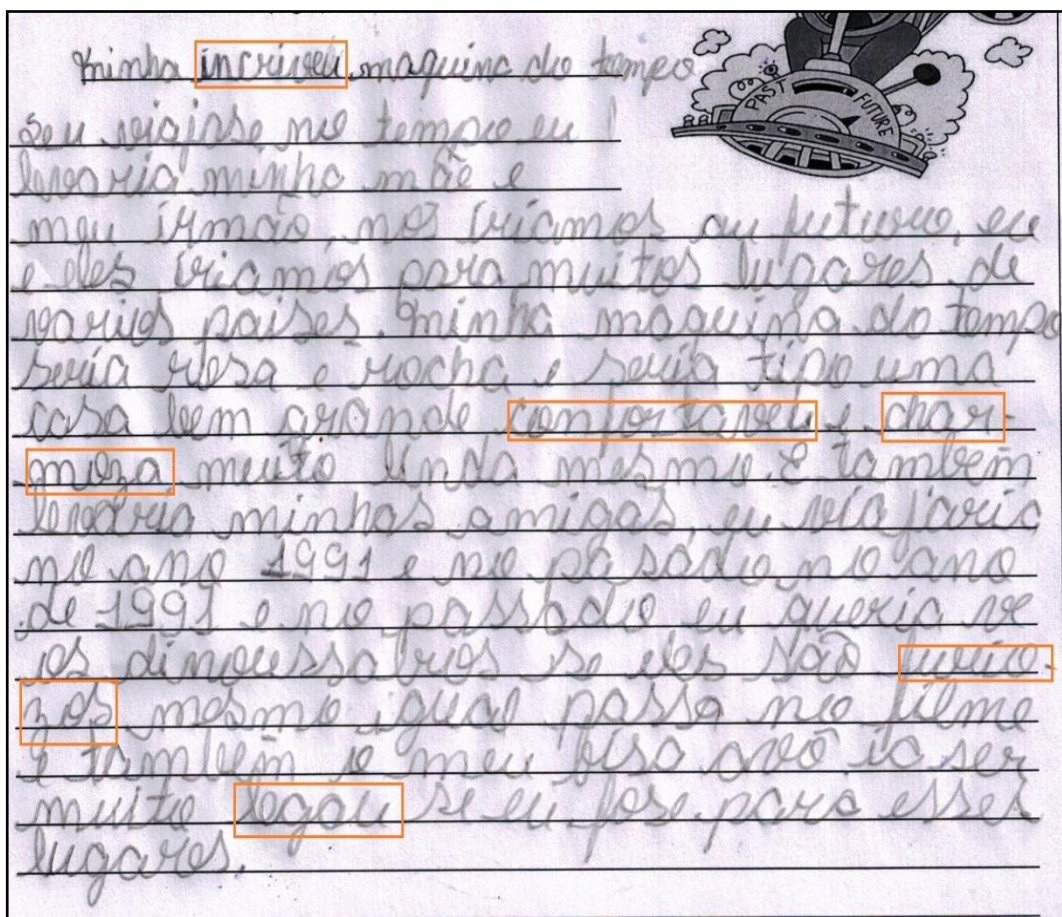 minha increveu maquina do tempo
PAST FUTURE
Seu viajase no tempo eu
levaria minha mãe e
meu irmão, nos iriamos au futuro, eu
e eles iriamos para muitos lugares de
varios paises. minha maquina do tempo
seria rosa e rocha e seria tipo uma
casa bem grande comfortaveu e char-
moza muito linda mesmo. E também
levaria minhas amigas, eu viajaria
no ano 1991 e no pasado no ano
de 1991 e no passado eu queria ve
os dinoussabros se eles são furio-
zos mesmo igual passa no filme
e também o meu bisa avô ia ser
muito legau se eu fose para esses
lugares.